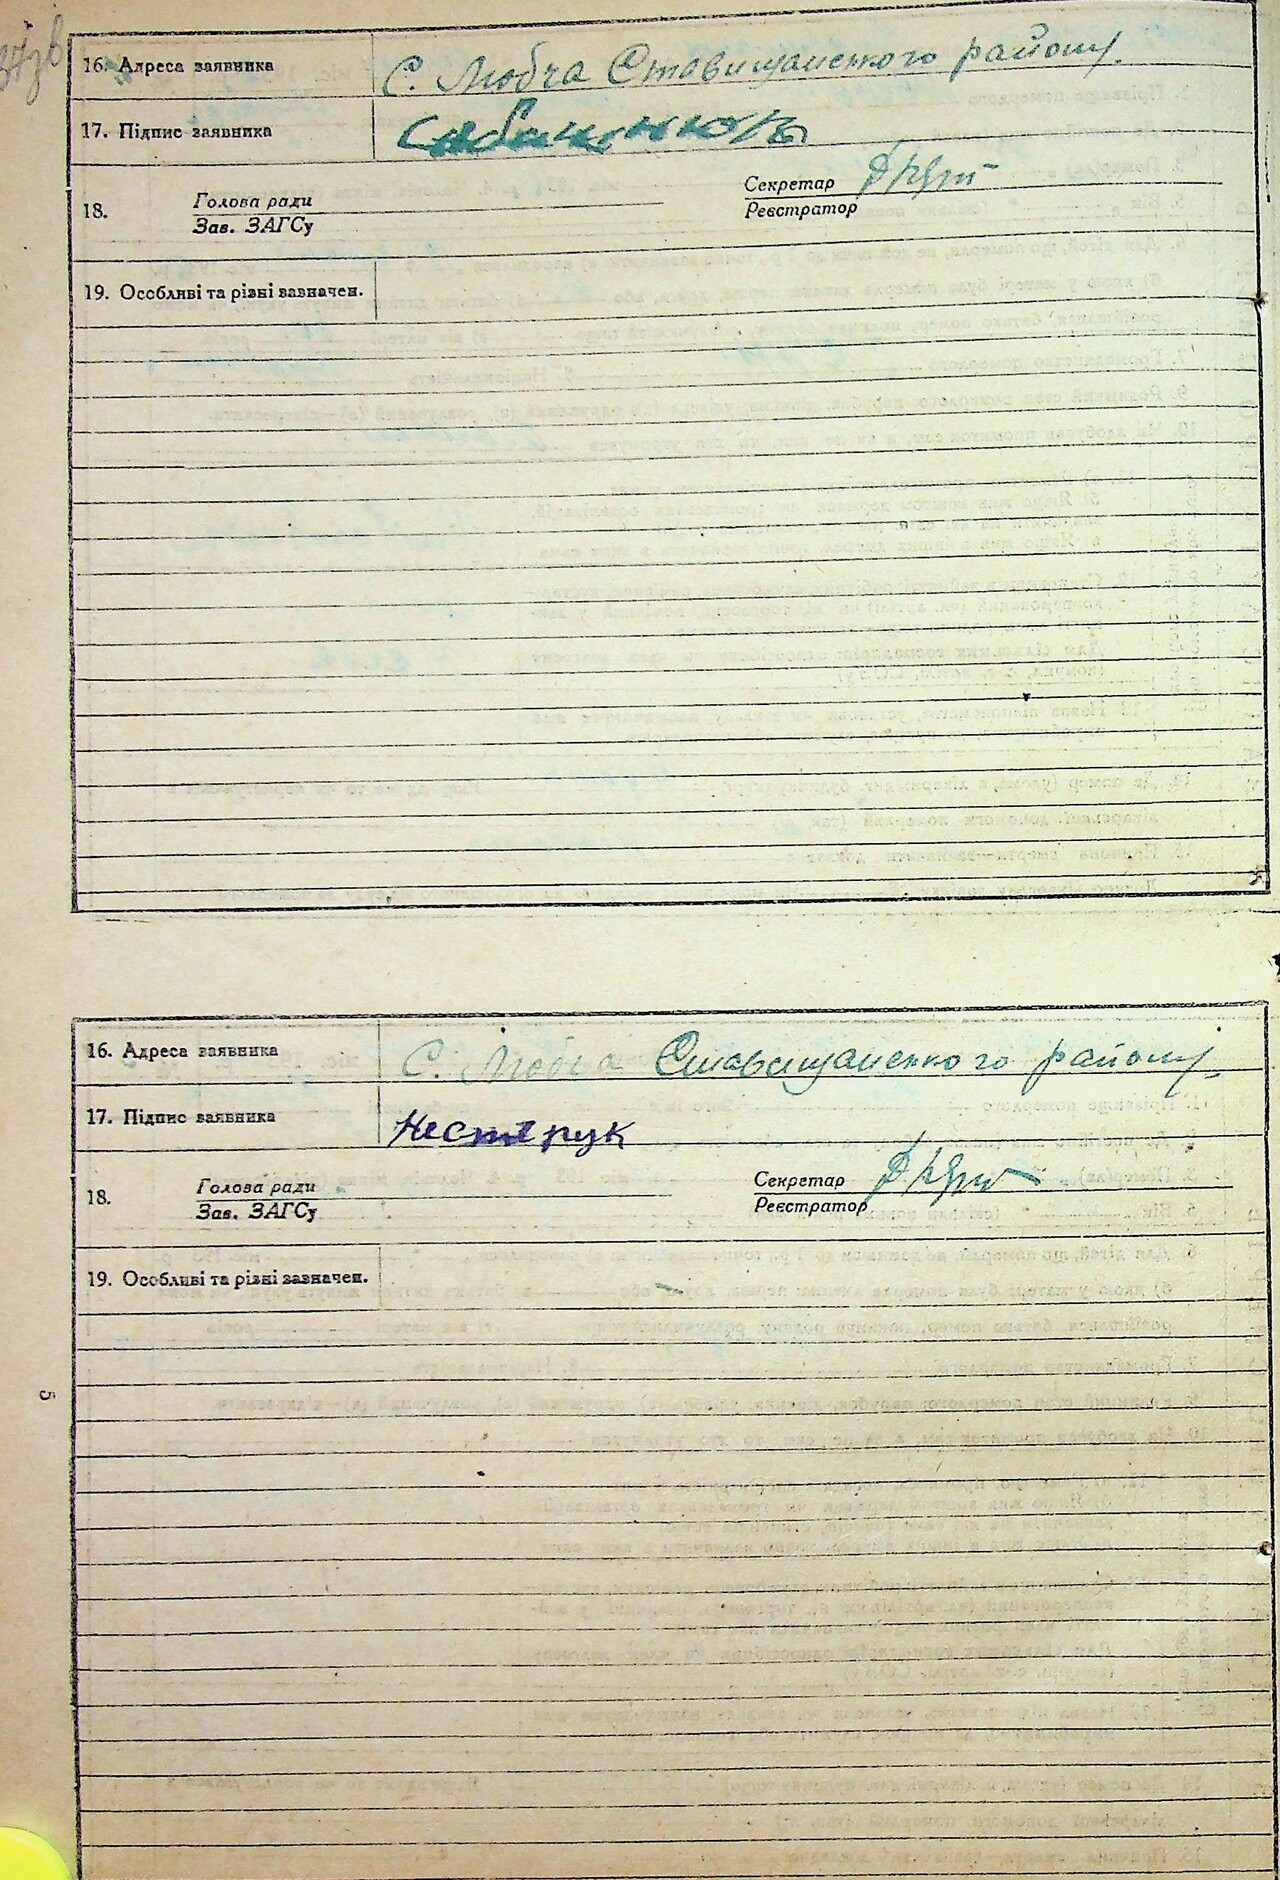 37зв
16. Адреса заявника С. Любча Ставищанского району.
17. Підпис заявника
18. Голова ради
Зав. ЗАГСу
Секретар
Реєстратор
19. Особливі та різні зазначен.
16. Адреса заявника С. Любча Ставищанского району
17. Підпис заявника Нестерук
18. Голова ради
Зав. ЗАГСу
Секретар
Реєстратор
19. Особливі та різні зазначен.
5